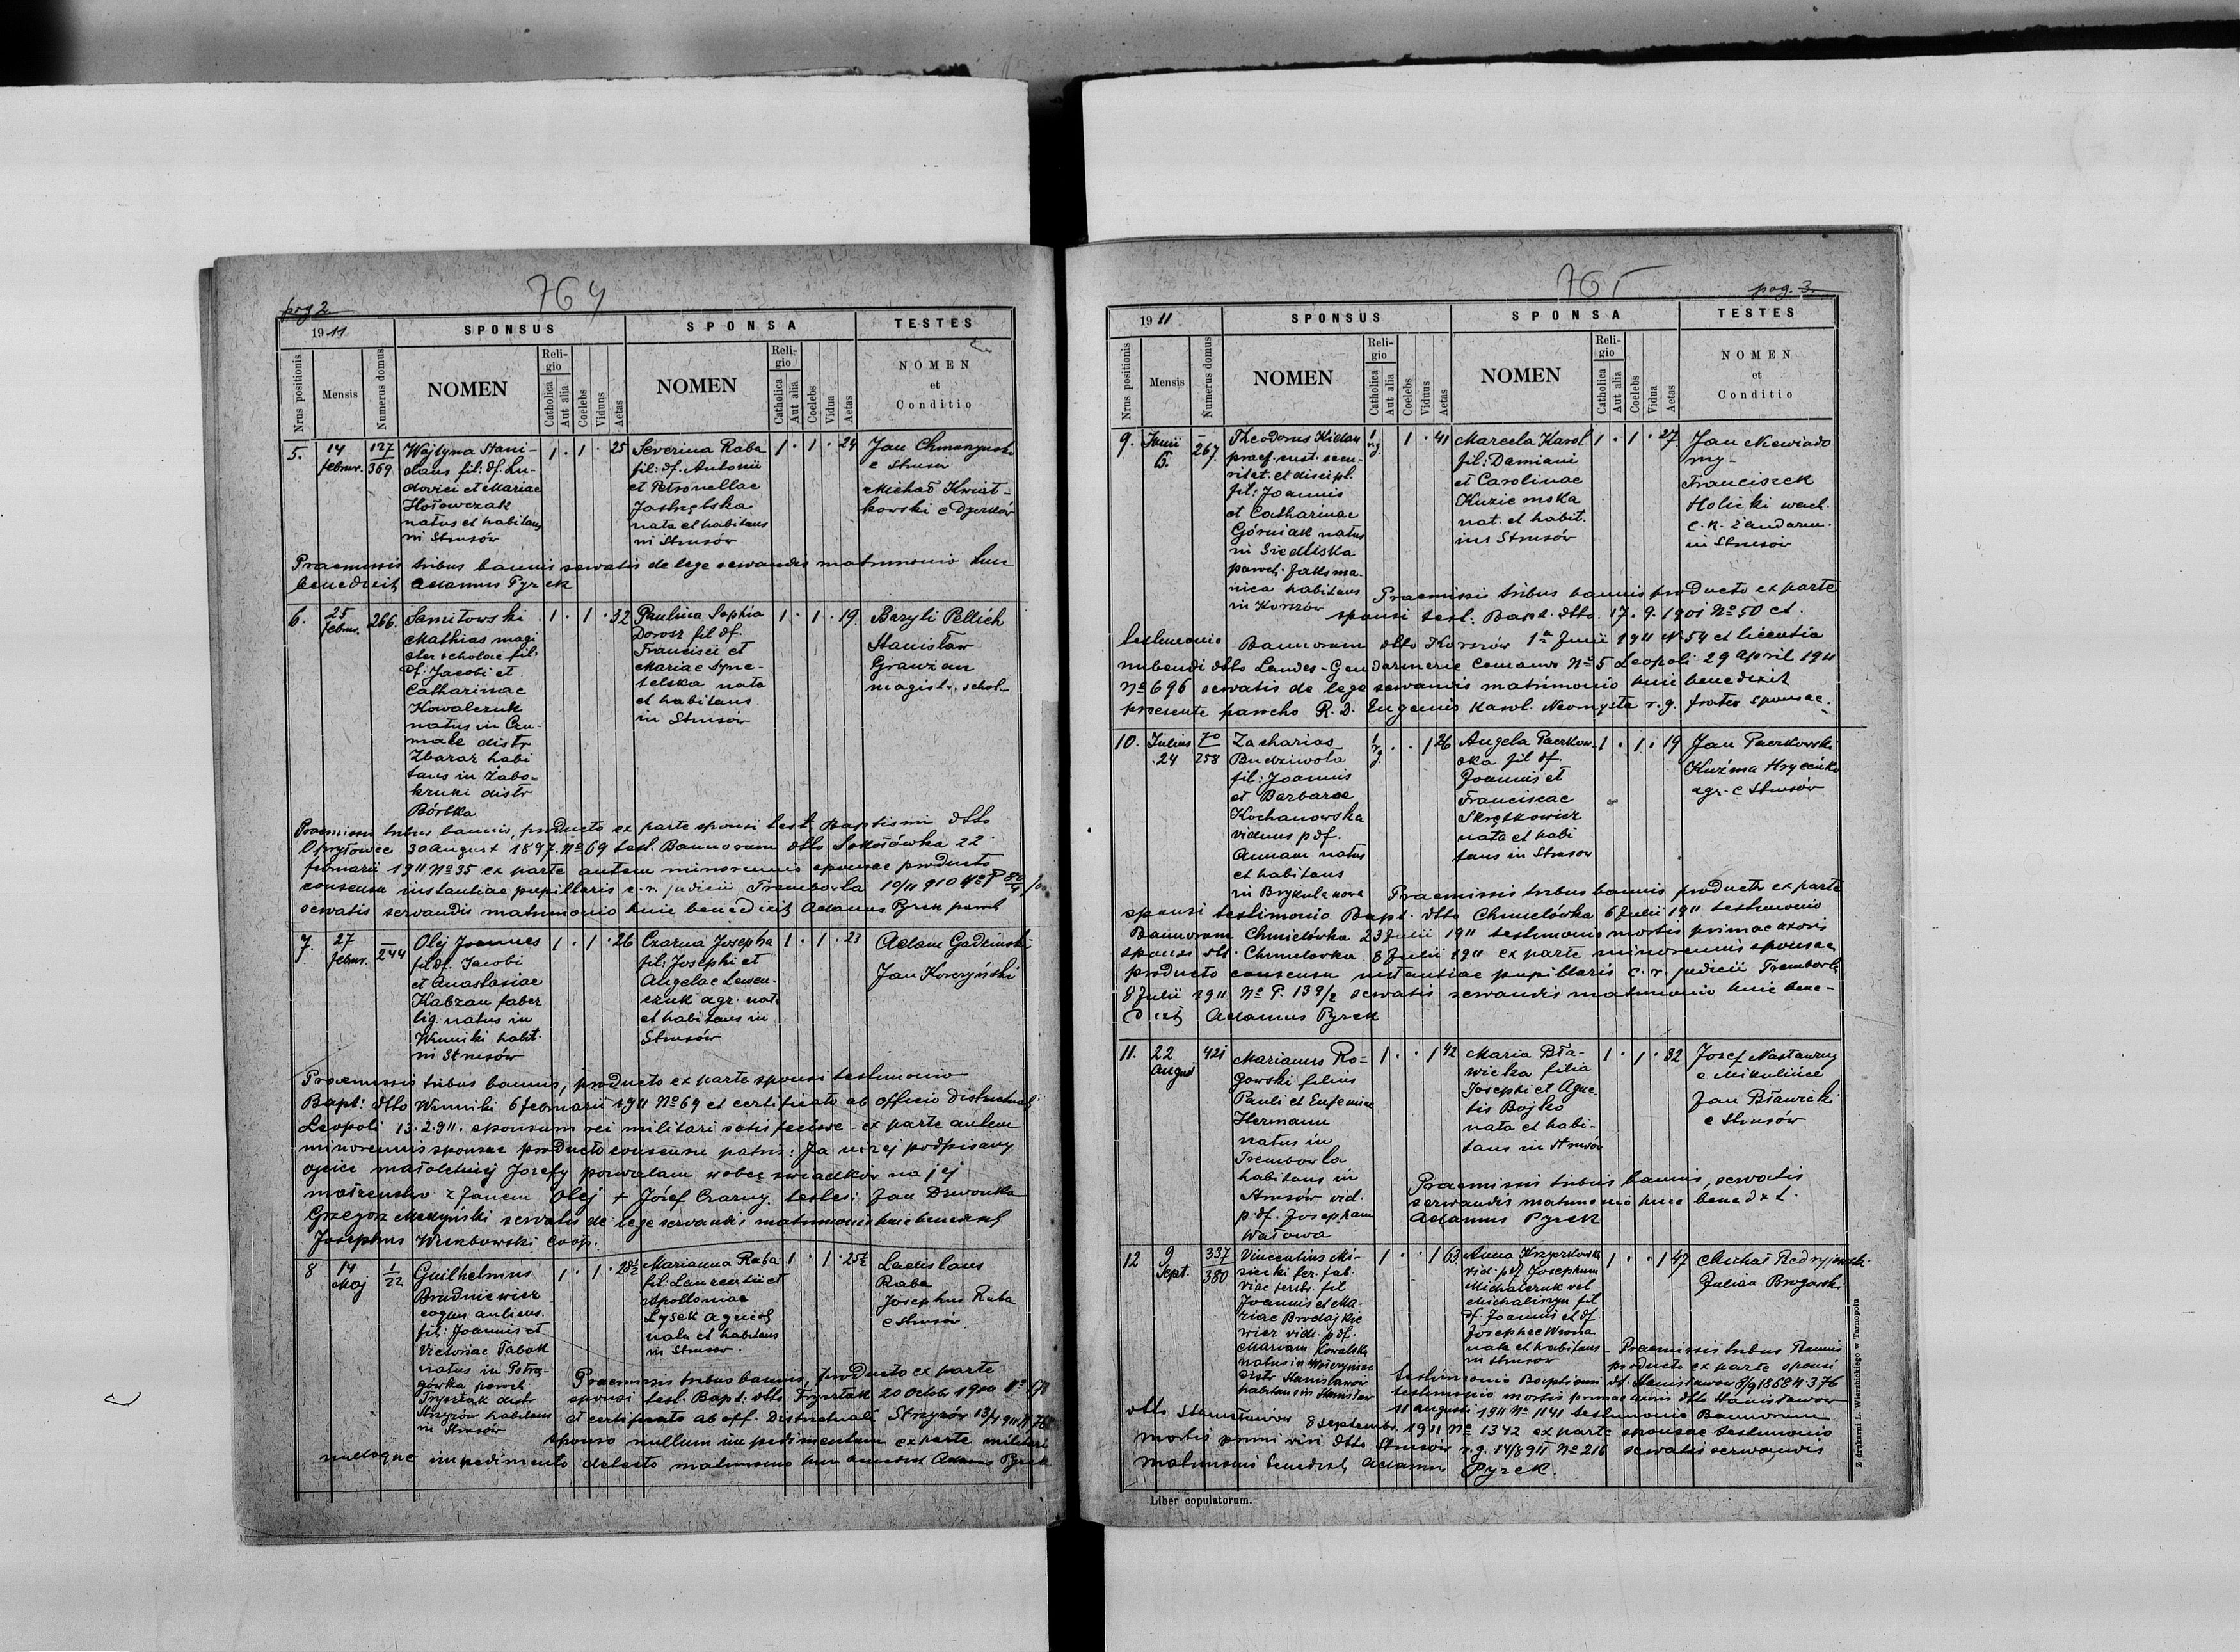 764
pag 2
1911
SPONSUS
SPONSA
TESTES
Nrus positionis
Mensis
Numerus domus
NOMEN
Religio
Catholica
Aut alia
Coelebs
Viduus
Aetas
NOMEN
Religio
Catholica
Aut alia
Coelebs
Vidua
Aetas
NOMEN
et
Conditio
5. 14 februar. 127/369
Wojtyna Stani-
slaus fil: df. Lu-
dovici et Mariae
Hołowczak
natus et habitans
in Strusów
1 . 1 . 25
Severina Raba
fil: df. Antonii
et Petronellae
Jastrzębska
nata et habitans
in Strusów
1 . 1 . 24
Jan
e Strusów
Michał Kwiat-
kowski e
Praemissis tribus bannis servatis de lege servandis matrimonio huic
benedixit Adamus Pyrek
6. 25 februar. 266.
Samitowski
Mathias magi
ster scholae fil:
df. Jacobi et
Catharinae
Kowalczuk
natus in
distr
Zbaraż habi
tans in Zabo-
kruki distr
Bóbrka
1 . 1 . 32
Paulina Sophia
Dorosz fil df.
Francisci et
Mariae
nata
et habitans
in Strusów
1 . 1 . 19
Bazyli Pellich
Stanisław
magistr. schol.
Praemissis tribus bannis, producto ex parte sponsi test. Baptismi dtto
Opryłowce 30 August 1897. No 69 test. Bannorum dtto Sokołówka 22
februarii 1911 No 35 ex parte autem minorennis sponsae producto
consensu instantiae pupillaris c. r. judicii Trembowla 10/11 910 No P
servatis servandis matrimonio huic benedixit Adamus Pyrek
7. 27 februar. 244
Olej Joannes
fil df. Jacobi
et Anastasiae
Kabzan faber
lig. natus in
Winniki habit.
in Strusów
1 . 1 . 26
Czarna Josepha
fil: Josephi et
Angelae Lewen-
czuk agr. nata
et habitans in
Strusów
1 . 1 . 23
Adam
Jan Korczyński
Praemissis tribus bannis, producto ex parte sponsi testimonio
Bapt: dtto Winniki 6 februarii 1911 No 69 et certificato ab officio districtuali
Leopoli 13.2.911. sponsum rei militari satis fecisse - ex parte autem
minorennis sponsae producto consensu patris: Ja niżej podpisany
ojciec małoletniej Józefy pozwalam wobec świadków na jej
małżeństwo z Janem Olej + Józef Czarny. testes: Jan Dzwonka
Grzegorz Medyński servatis de lege servandis matrimonio huic benedixit
Josephus coop.
8 14 Maj 1/22
Guilhelmus
Brudniewicz
coquus aulicus.
fil: Joannis et
Victoriae Tabak
natus in
Frysztak distr
Strzyżów habitans
in Strusów
1 . 1 . 28½
Marianna Raba
fil: Laurentii et
Apolloniae
Łysek
nata et habitans
in Strusów.
1 . 1 25½
Ladislaus
Raba
Josephus Raba
e Strusów
Praemissis tribus bannis, producto ex parte
sponsi test. Bapt. dtto Frysztak 20 Octobr
et certificato ab off. Districtuali Strzyżów
sponso nullum impedimentum ex parte militari
nulloque impedimento detecto matrimonio huic benedixit Adamus Pyrek
765
pag. 3.
1911
SPONSUS
SPONSA
TESTES
Nrus positionis
Mensis
Numerus domus
NOMEN
Religio
Catholica
Aut alia
Coelebs
Viduus
Aetas
NOMEN
Religio
Catholica
Aut alia
Coelebs
Vidua
Aetas
NOMEN
et
Conditio
9. Junii 5. 267.
Theodorus
praef. cust. secu-
ritat. et discipl.
fil: Joannis
et Catharinae
Górniak natus
in Siedliska
powiat
habitans
in Korszów
1 r.g. 1 . 41
Marcela Karol
fil: Damiani
et Carolinae
Kuziemska
nat. et habit.
in Strusów
1 . 1 . 27
Jan Niewiado
my-
Franciszek
Holicki wach.
c. k. żandarm.
in Strusów
Praemissis tribus bannis producto ex parte
sponsi test. Bapt. dtto. 17.9.1901 No 50 et.
testimonio Bannorum dtto Korszów 1a Junii 1911 N. 54 et licentia
nubendi dtto Landes-Gendarmerie Comando No 5 Leopoli 29 April 1911
No 696 servatis de lege servandis matrimonio huic benedixit
presente parocho R. D. Eugenius Karol. Neomysta r. g. frater sponsae.
10. Julius 24 70/258
Zacharias
Budziwola
fil: Joannis
et Barbarae
Kochanowska
viduus p df.
Annam natus
et habitans
in Brykula nowa
1 r.g. . . 1 26
Angela Paczkow
ska fil df.
Joannis et
Franciscae
Skrętkowicz
nata et habi
tans in Strusów
1 . 1 . 19
Jan Paczkowski
Kuźma
agr. e Strusów
Praemissis tribus bannis producto ex parte
sponsi testimonio Bapt. dtto Chmielówka 6 Julii 1911 testimonio
Bannorum Chmielówka 23 Julii 1911 testimonio mortis primae uxoris
sponsi dtt. Chmielowka 8 Julii 1911 ex parte minorennis sponsae
producto consensu instantiae pupillaris c. r. judicii Trembowla
8 Julii 1911 No P. 139/2 servatis servandis matrimonio huic bene-
dixit Adamus Pyrek
11. 22 August 421
Marianus Ro-
gowski filius
Pauli et Eufemiae
Hermann
natus in
Trembowla
habitans in
Strusów vid.
p. df. Josepham
Watowa
1 . . 1 42
Maria Bła-
wicka filia
Josephi et Agne-
tis Bojko
nata et habi-
tans in Strusów
1 . 1 . 32
Josef
e Mikulińce
Jan Bławicki
e Strusów
Praemissis tribus bannis, servatis
servandis matrimonio huic bened x t.
Adamus Pyrek
12 9 Sept. 337/380
Vincentius Mi-
siecki
fil
Joannis et Ma-
riae
wicz vid. p df.
Mariam Kowalską
natus in
distr Stanisławów
habitans in Stanisław
1 . . 1 63
Anna
vid. p df Josephum
Michalczuk vel
Michaliszyn fil
df. Joannis et df
Josephae Wrona
nata et habitans
in Strusów
1 . . 1 47
Michał
Julian
Praemissis tribus Bannis
producto ex parte sponsi
testimonio Baptismi dtt. Stanisławów 8/9 1868 N. 376
testimonio mortis primae uxoris dtto Stanisławow
11 augusti 1911 No 1141 testimonio Bannorum
dtto Stanisławów 8 septembr. 1911 No 1342 ex parte sponsae testimonio
mortis primi viri dtto Strusów r. g. 14/8 911 No 216 servatis servandis
matrimonio benedixit Adamus Pyrek.
Liber copulatorum.
Z drukarni L. Wierzbickiego w Tarnopolu